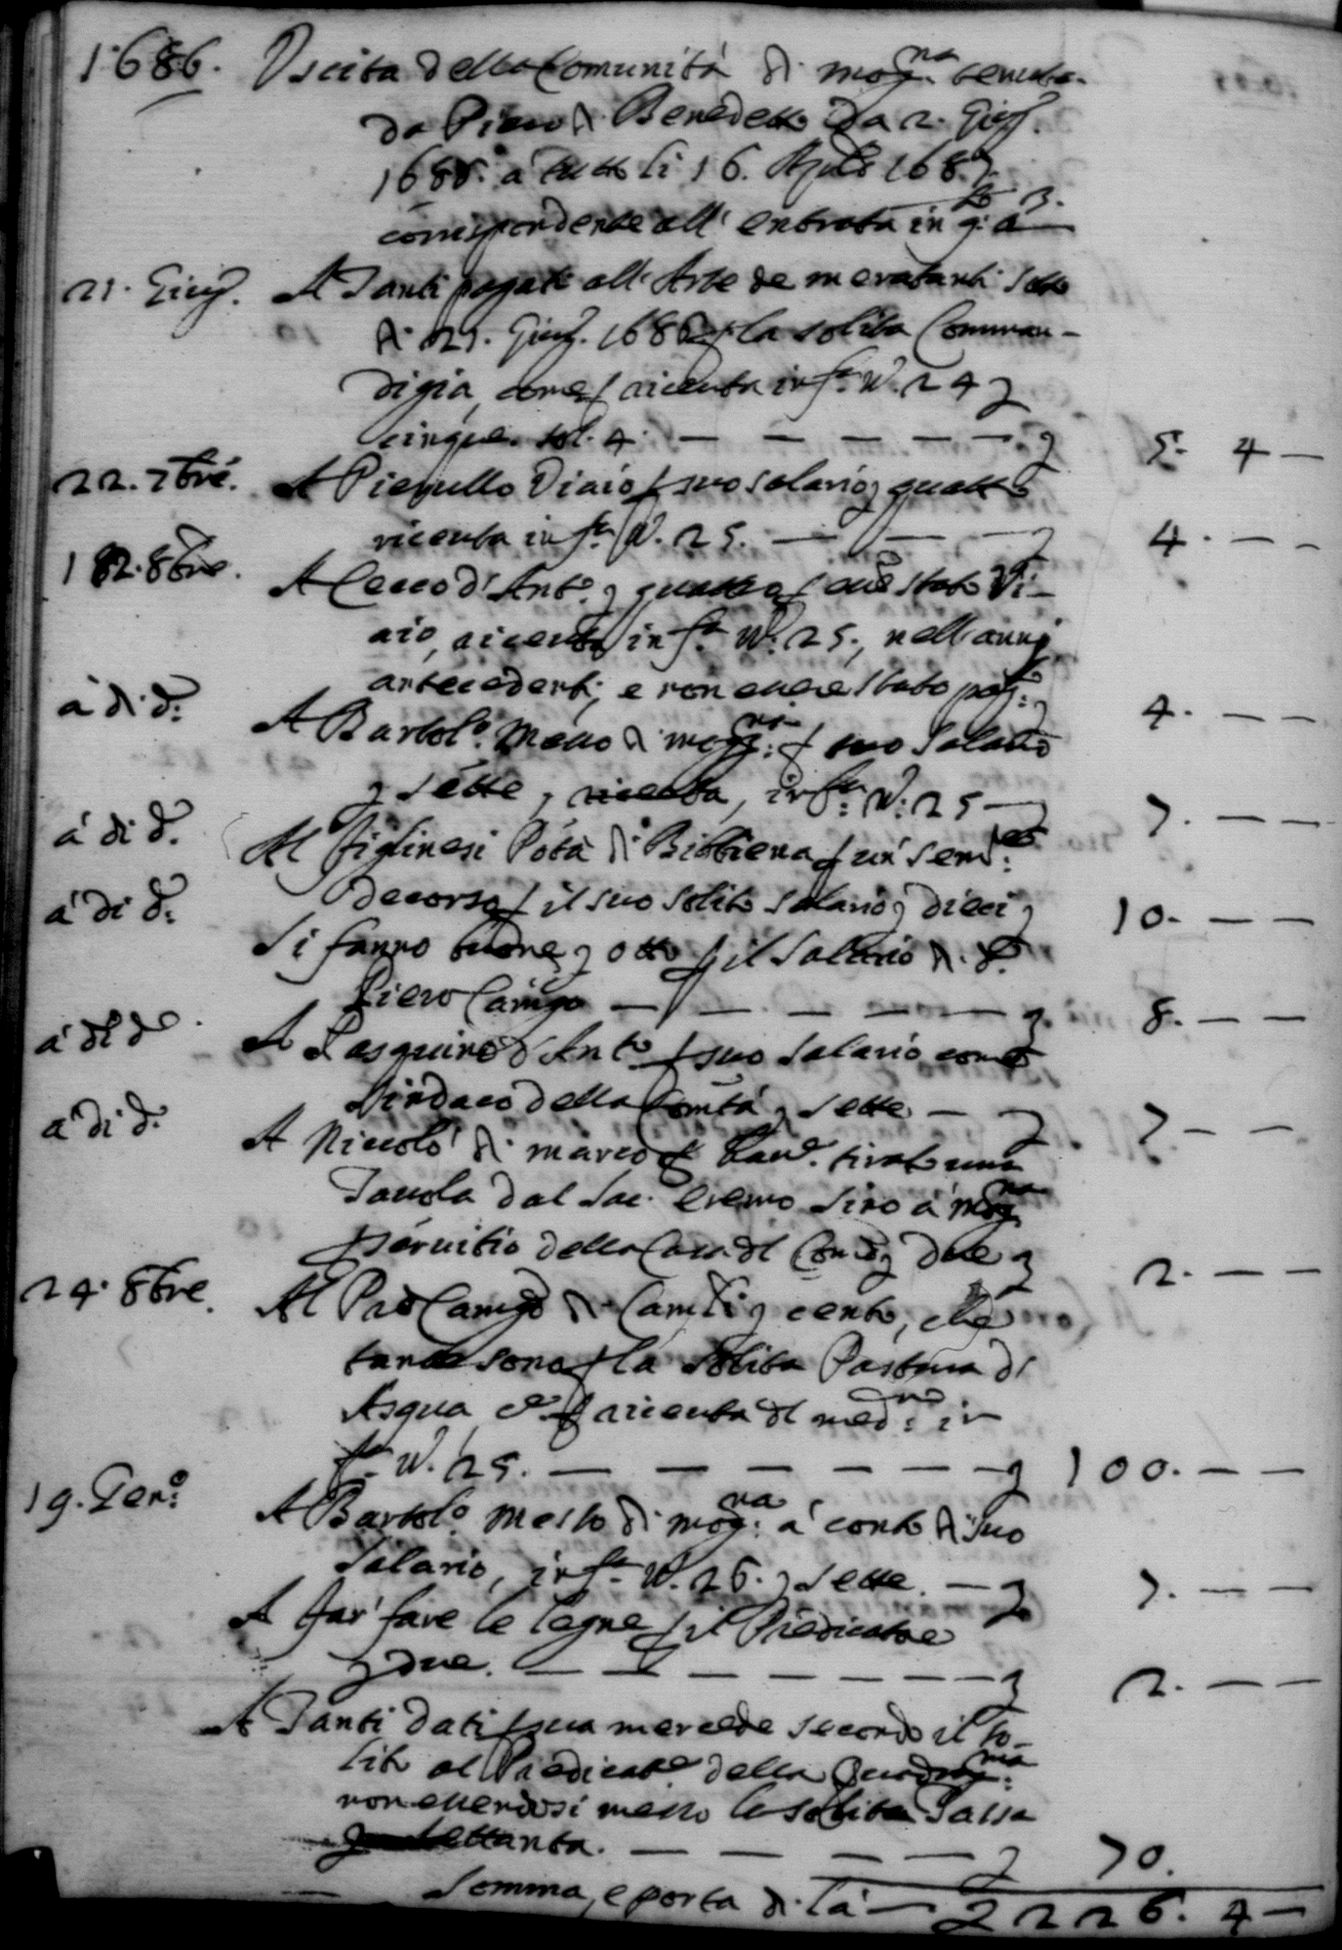 1686. Uscita della Comunità di Mogna tenuta
da Piero di Benedetto da 2. Giug.
1686. à tutto li 16. Aprile 1687.
corrispondente all' entrata in q.to à 3.
21. Giug. A Tanti pagati all' Arte de mercatanti sotto
dì 21. Giug. 1686 p la solita Comman-
digia, come p ricevuta in fa. N. 24 £
cinque. sol. 4. — — — — — £ 5. 4 —
22. 7bre. A Pierullo Viaio p suo salario £ quattro
ricevuta in fa. N. 25. — — — £ 4. — —
12. 8bre. A Cecco d' Anto. £ quattro p essere stato Vi-
aio, ricevuta in fa. N. 25., nell' anni
antecedenti, e non essere stato pag.o £ 4. — —
à dì do. A Bartolo. Messo di Mogna. p suo salario
£ sette, ricevuta, in fa. N. 25 — £ 7. — —
à dì do. Al Figlinesi Potà di Bibbiena p un' sem.re
decorso p il suo solito salario £ dieci £ 10. — —
à dì do. Si fanno buone £ otto p il salario di do.
Piero Camgo — — — — — £ 8. — —
à dì do. A Pasquino d' Anto. p suo salario come
sindaco della Comtà £ sette — £ 7 — —
à dì do. A Niccolò di Marco p haver tirato una
Tavola dal Sac. eremo sino à Mogna
p servitio della Casa del Com.e £ due £ 2. — —
24. 8bre. Al Pro Camgo di Camldi £ cento, che
tante sono p la solita Pastura di
Asqua e p ricevuta del medmo. in
fa. N. 25. — — — — — — £ 100. — —
19. Geno. A Bartolo. messo di Mogna. à conto di suo
salario, in fa. N. 26. £ sette. — £ 7. — —
A far' fare le legne p il Predicatore
£ due. — — — — — — £ 2. — —
A Tanti dati p sua mercede secondo il so-
lito al Predicate. della Quadragma.
non essendosi messo la solita Tassa
£ settanta. — — — — £ 70.
Somma, e porta di là — £ 226. 4 —